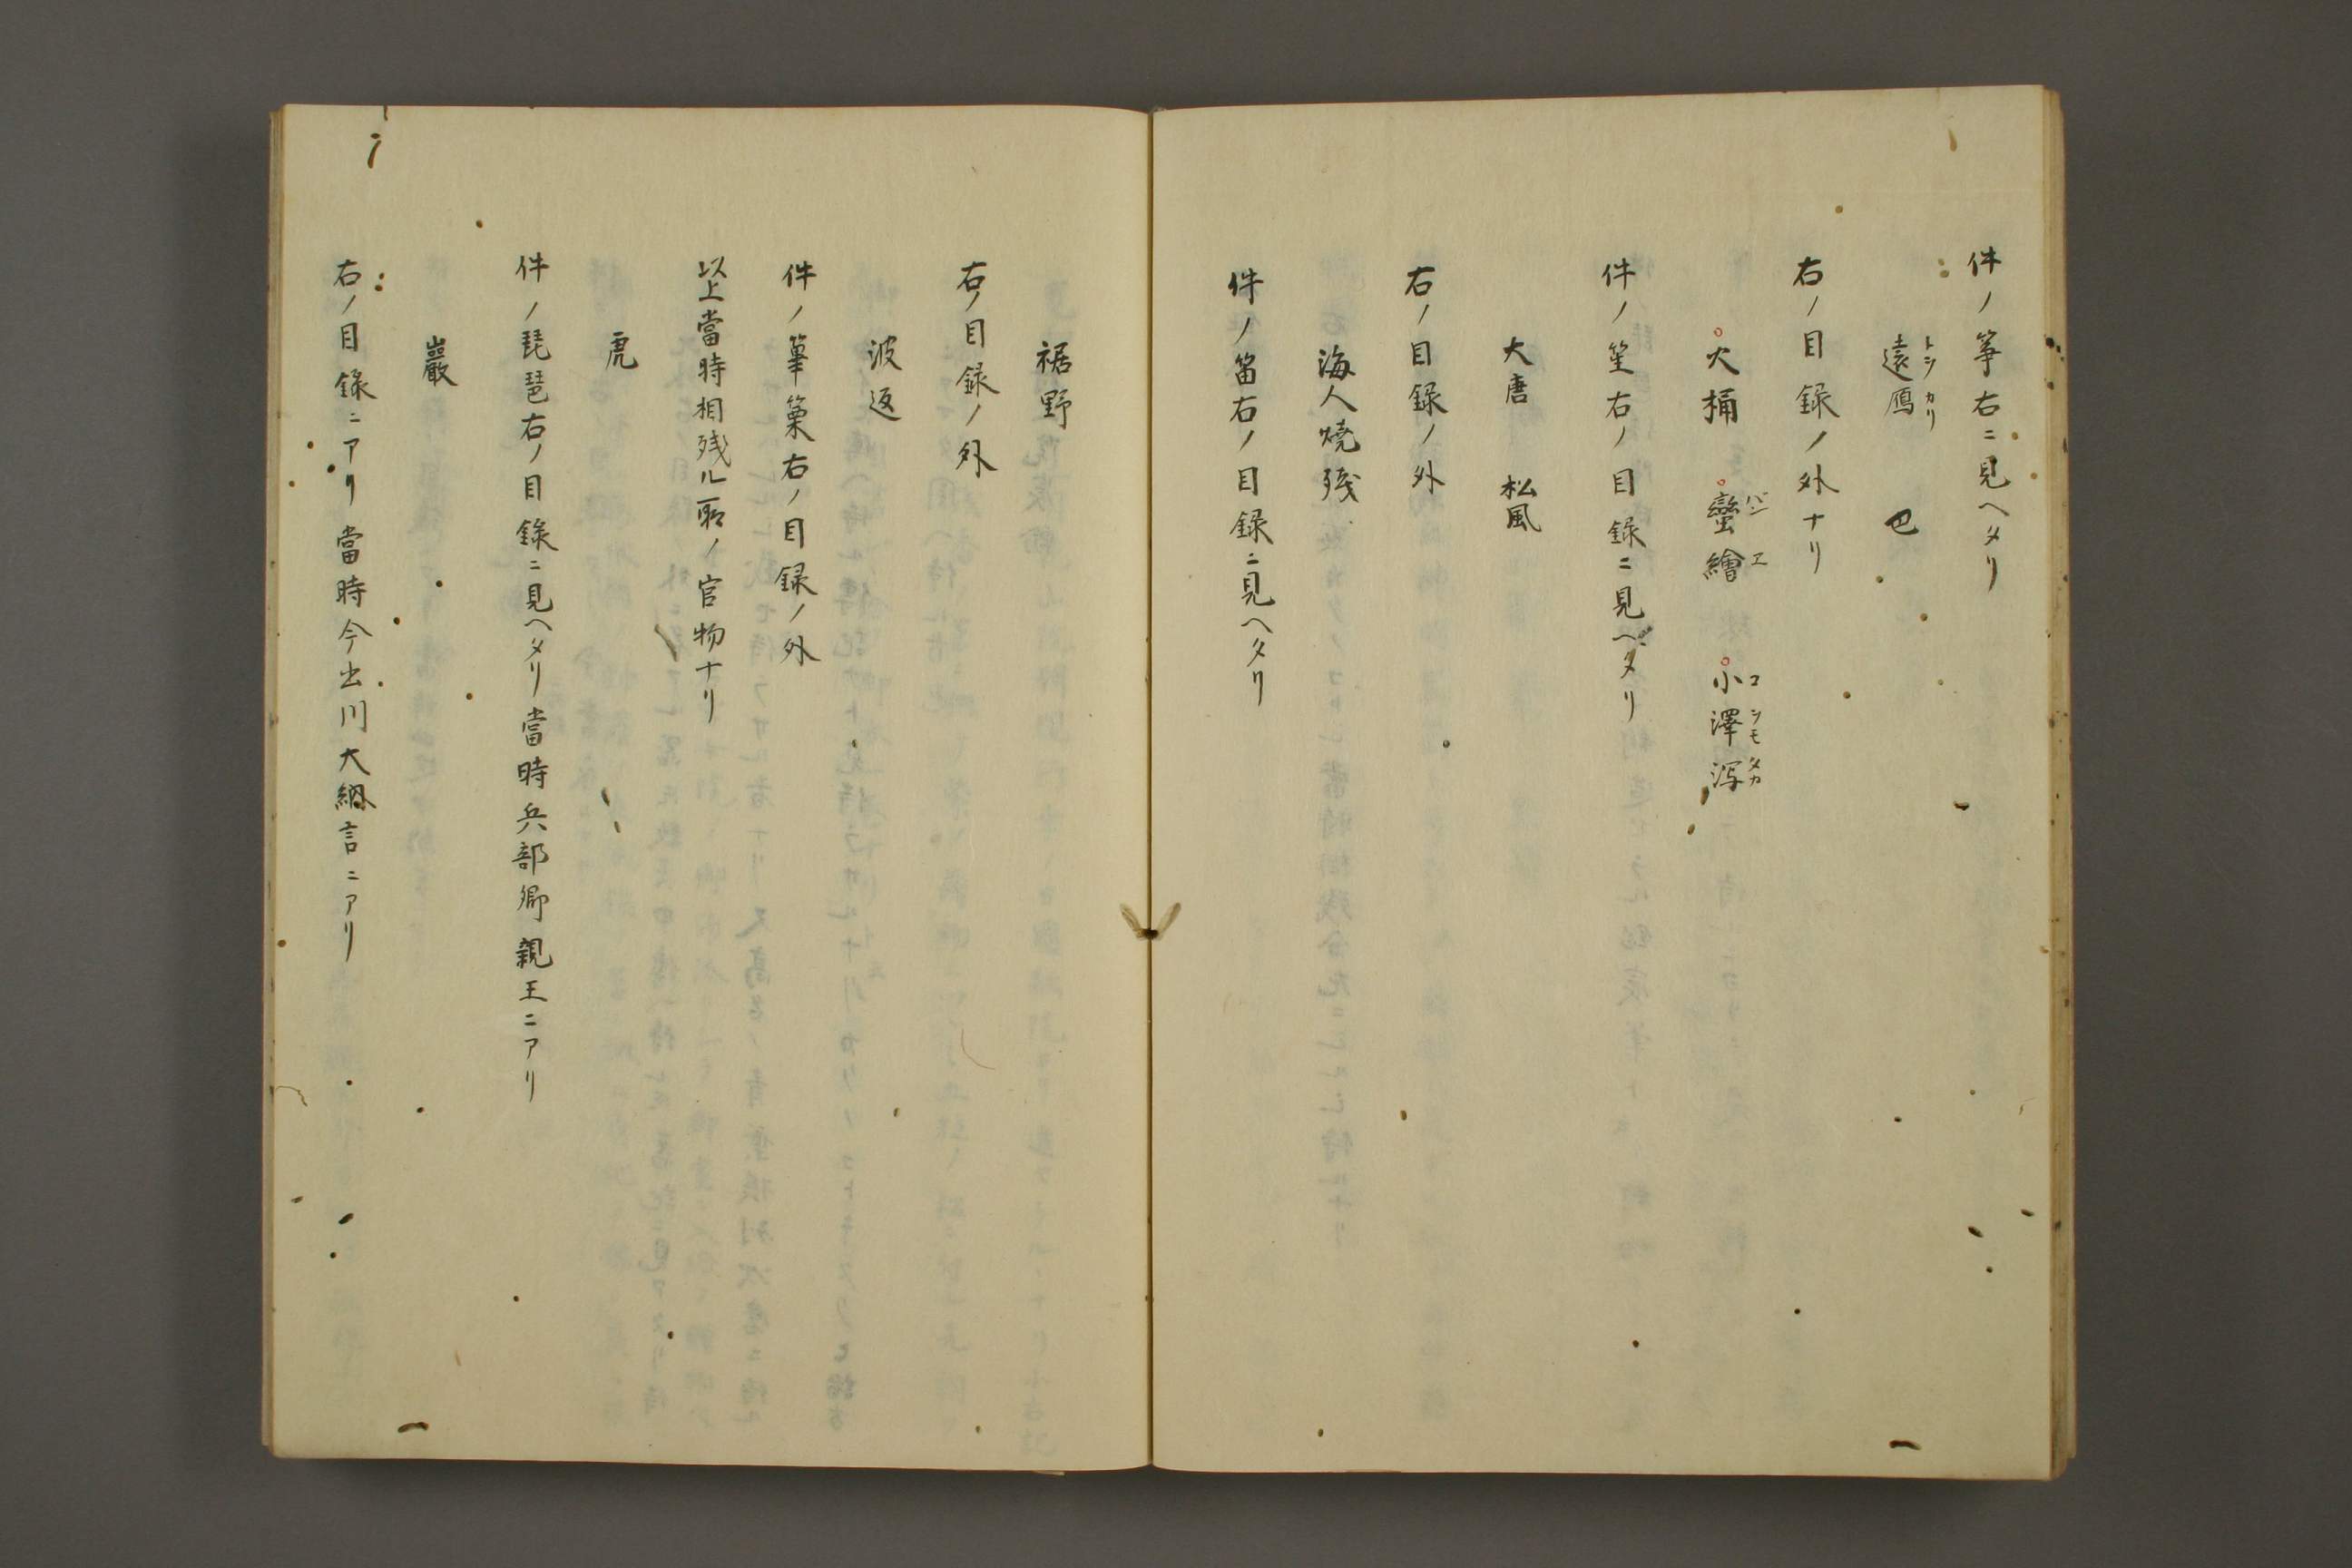 件ノ箏右ニ見ヘタリ
遠鴈 巴
トヲカリ
右ノ目録ノ外ナリ
火桶 蠻繪 小澤瀉
バンヱ コヲモタカ
件ノ笙右ノ目録ニ見ヘタリ
大唐 松風
右ノ目録ノ外
海人焼残
件ノ笛右ノ目録ニ見ヘタリ
裾野
右ノ目録ノ外
波返
件ノ篳篥右ノ目録ノ外
以上當時相残ル所ノ官物ナリ
虎
件ノ琵琶右ノ目錄ニ見ヘタリ當時兵部卿親王ニアリ
巖
右ノ目錄ニアリ當時今出川大納言ニアリ